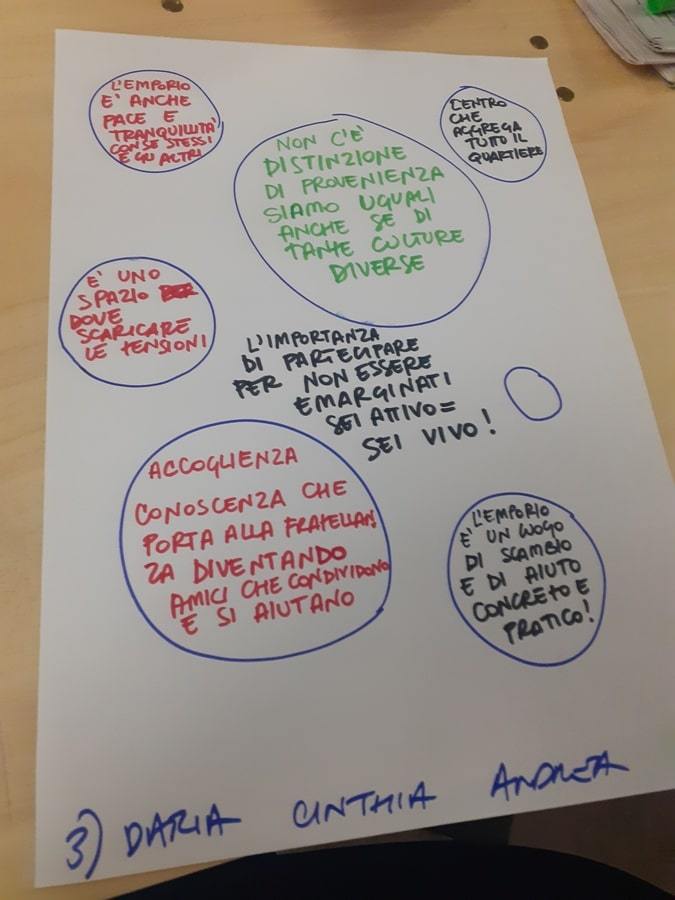 L'EMPORIO
E' ANCHE
PACE E
TRANQUILLITA'
CON SE STESSI
E GLI ALTRI
NON C'È
DISTINZIONE
DI PROVENIENZA
SIAMO UGUALI
ANCHE SE DI
TANTE CULTURE
DIVERSE
CENTRO
CHE
AGGREGA
TUTTO IL
QUARTIERE
E' UNO
SPAZIO
DOVE
SCARICARE
LE TENSIONI
L'IMPORTANZA
DI PARTECIPARE
PER NON ESSERE
EMARGINATI
SEI ATTIVO =
SEI VIVO!
ACCOGLIENZA
CONOSCENZA CHE
PORTA ALLA FRATELLAN
ZA DIVENTANDO
AMICI CHE CONDIVIDONO
E SI AIUTANO
L'EMPORIO
E' UN LUOGO
DI SCAMBIO
E DI AIUTO
CONCRETO E
PRATICO!
3) DARIA CINTHIA ANDREA